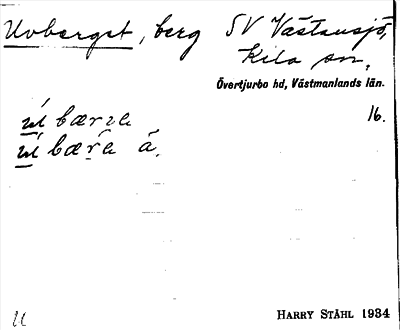 Uvberget, berg SV Västansjö,
Kila sn,
Övertjurbo hd, Västmanlands län.
16.
å.
HARRY STÅHL 1934